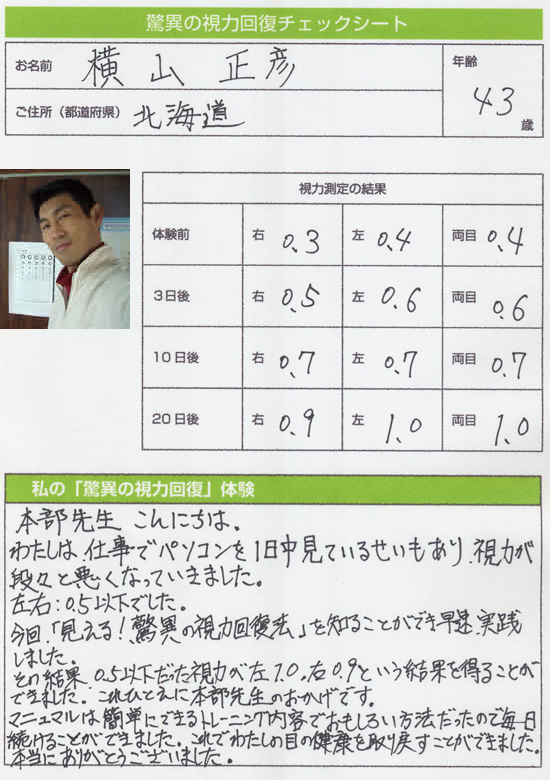 驚異の視力回復チェックシート
お名前 横山 正彦
年齢 43歳
ご住所(都道府県) 北海道
視力測定の結果
体験前 右 0.3 左 0.4 両目 0.4
3日後 右 0.5 左 0.6 両目 0.6
10日後 右 0.7 左 0.7 両目 0.7
20日後 右 0.9 左 1.0 両目 1.0
私の「驚異の視力回復」体験
本部先生 こんにちは。
わたしは、仕事でパソコンを1日中見ているせいもあり、視力が
段々と悪くなっていきました。
左右:0.5以下でした。
今回、「見える!驚異の視力回復法」を知ることができ早速、実践
しました。
その結果、0.5以下だった視力が左1.0。右0.9という結果を得ることが
できました。これひとえに本部先生のおかげです。
マニュマルは簡単にできるトレーニング内容でおもしろい方法だったので毎日
続けることができました。これでわたしの目の健康を取り戻すことができました。
本当にありがとうございました。